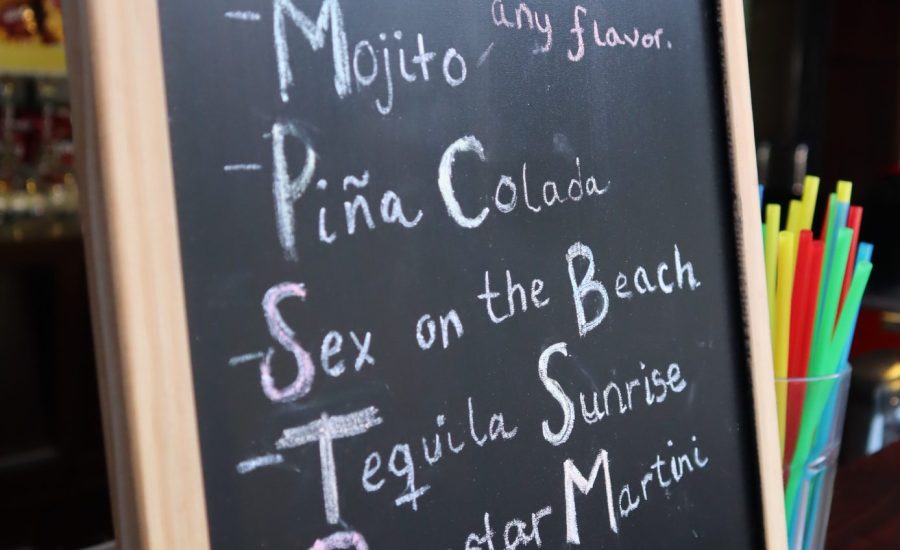 - Mojito any flavor.
- Piña Colada
- Sex on the Beach
- Tequila Sunrise
Martini